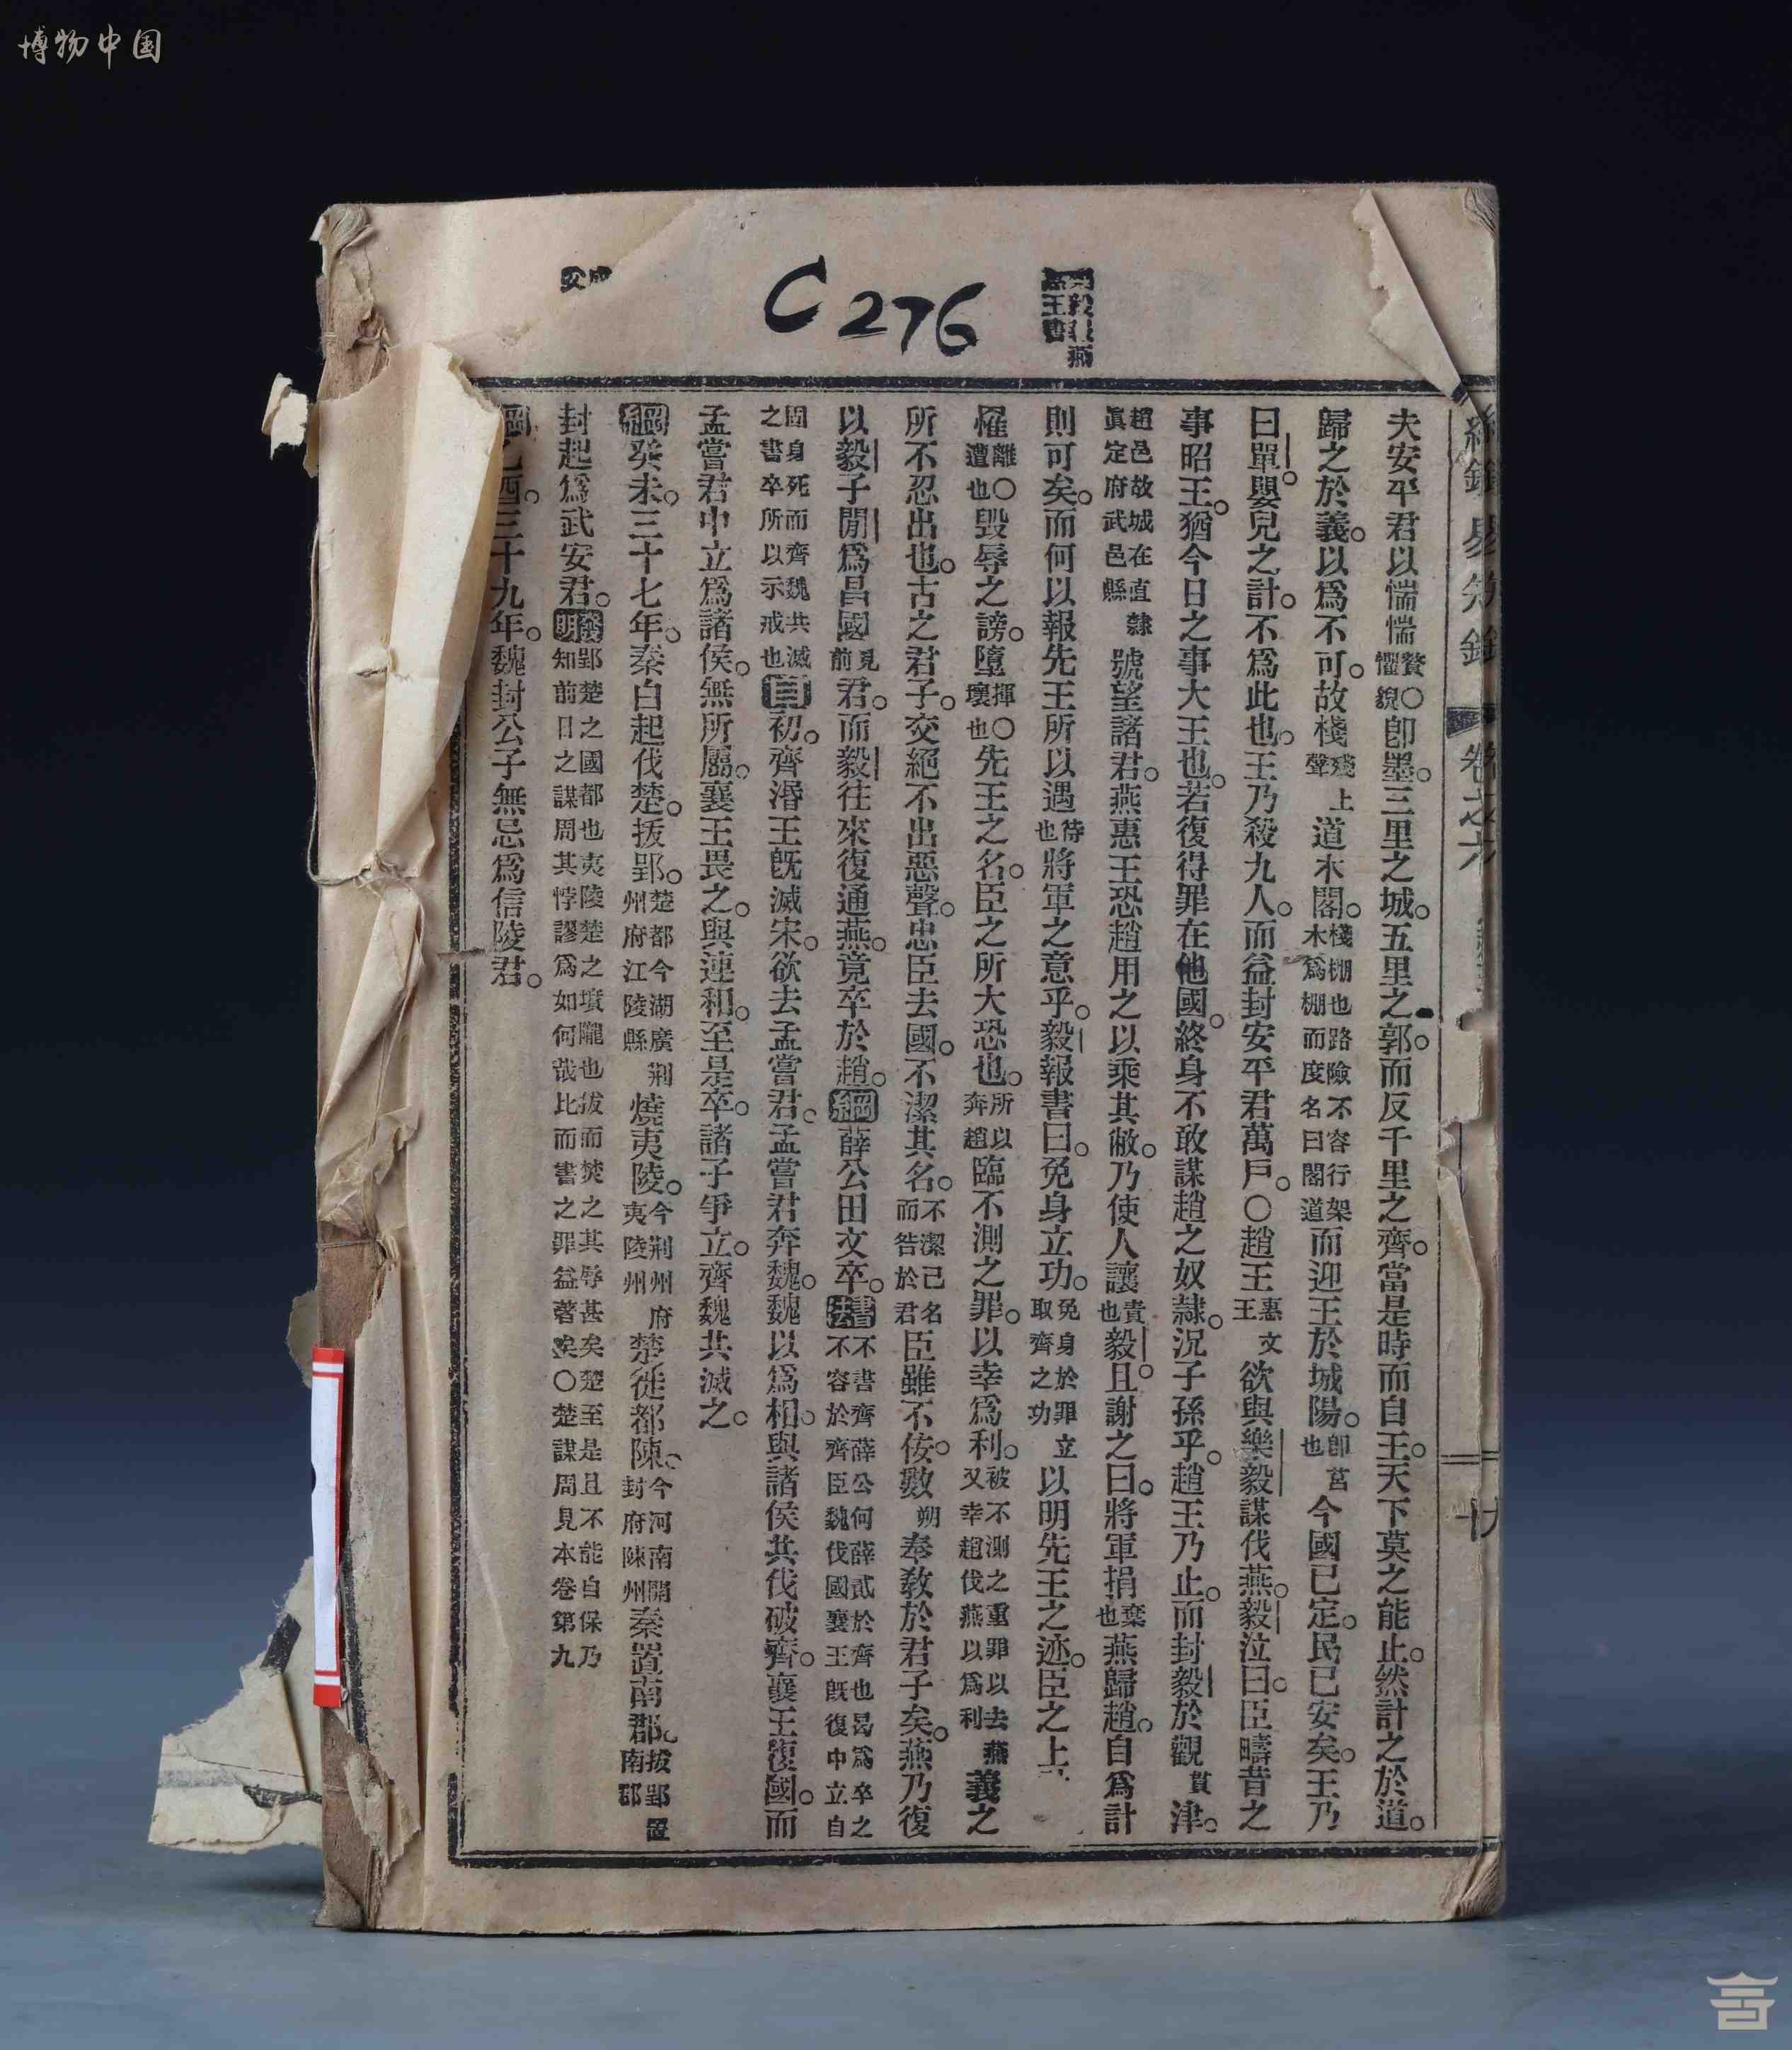 博物中国
C276
夫安平君以惴惴贅懼○貌即墨。三里之城。五里之郭。而反千里之齊。當是時而自王。天下莫之能止。然計之於道。
歸之於義。以爲不可。故棧殘上聲道木閣。棧棚也路險不容行架木爲棚而度名曰閣道而迎王於城陽。即莒也今國已定。民已安矣。王乃
曰單。嬰兒之計。不爲此也。王乃殺九人。而益封安平君萬戶。○趙王惠文王欲與樂毅謀伐燕。毅泣曰。臣疇昔之
事昭王。猶今日之事大王也。若復得罪在他國。終身不敢謀趙之奴隸。況子孫乎。趙王乃止。而封毅於觀貫津。
趙邑故城在直隸眞定府武邑縣號望諸君。燕惠王恐趙用之以乘其敝。乃使人讓責也毅。且謝之曰。將軍捐棄也燕歸趙。自爲計
則可矣。而何以報先王所以遇待也將軍之意乎。毅報書曰。免身立功。免身於罪立取齊之功以明先王之迹。臣之上
罹離遭也○毀辱之謗。墮揮壞也○先王之名。臣之所大恐也。所以奔趙臨不測之罪。以幸爲利。被不測之重罪以去燕又幸趙伐燕以爲利義之
所不忍出也。古之君子。交絕不出惡聲。忠臣去國。不潔其名。不潔己名而咎於君臣雖不佞。數朔奉敎於君子矣。燕乃復
以毅子閒爲昌國見前君。而毅往來復通燕。竟卒於趙。綱薛公田文卒。書法不書齊薛公何薛貳於齊也曷爲卒之不容於齊臣魏伐國襄王旣復中立自
固身死而齊魏共滅之書卒所以示戒也目初。齊湣王旣滅宋。欲去孟嘗君。孟嘗君奔魏。魏以爲相。與諸侯共伐破齊。襄王復國。而
孟嘗君中立爲諸侯。無所屬。襄王畏之。與連和。至是卒。諸子爭立。齊魏共滅之。
綱癸未。三十七年。秦白起伐楚。拔郢。楚都今湖廣荆州府江陵縣燒夷陵。今荆州府夷陵州楚徙都陳。今河南開封府陳州秦置南郡。拔郢置南郡
封起爲武安君。發明郢楚之國都也夷陵楚之墳隴也拔而焚之其辱甚矣楚至是且不能自保乃知前日之謀周其悖謬爲如何哉比而書之罪益著矣○楚謀周見本卷第九
綱乙酉。三十九年。魏封公子無忌爲信陵君。